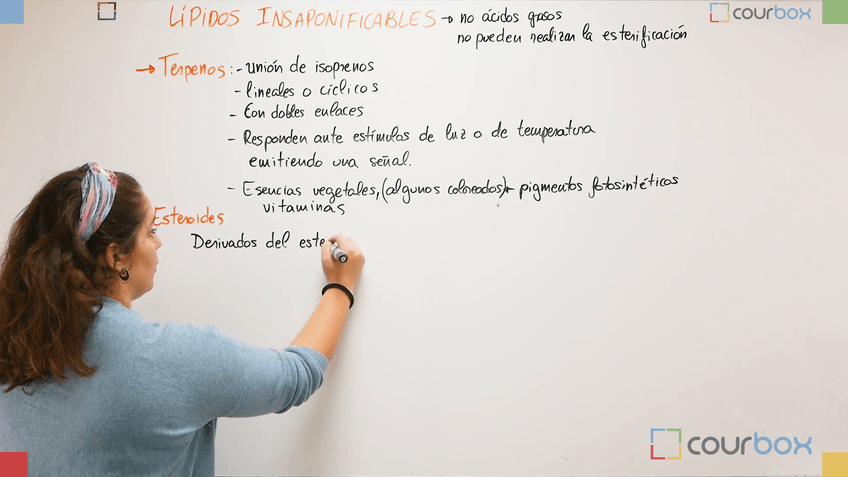 LÍPIDOS INSAPONIFICABLES → no ácidos grasos
no pueden realizar la esterificación
→ Terpenos: - unión de isoprenos
- lineales o cíclicos
- Con dobles enlaces
- Responden ante estímulos de luz o de temperatura
emitiendo una señal.
- Esencias vegetales, (algunos coloreados) → pigmentos fotosintéticos
vitaminas
Esteroides
Derivados del este
courbox
courbox